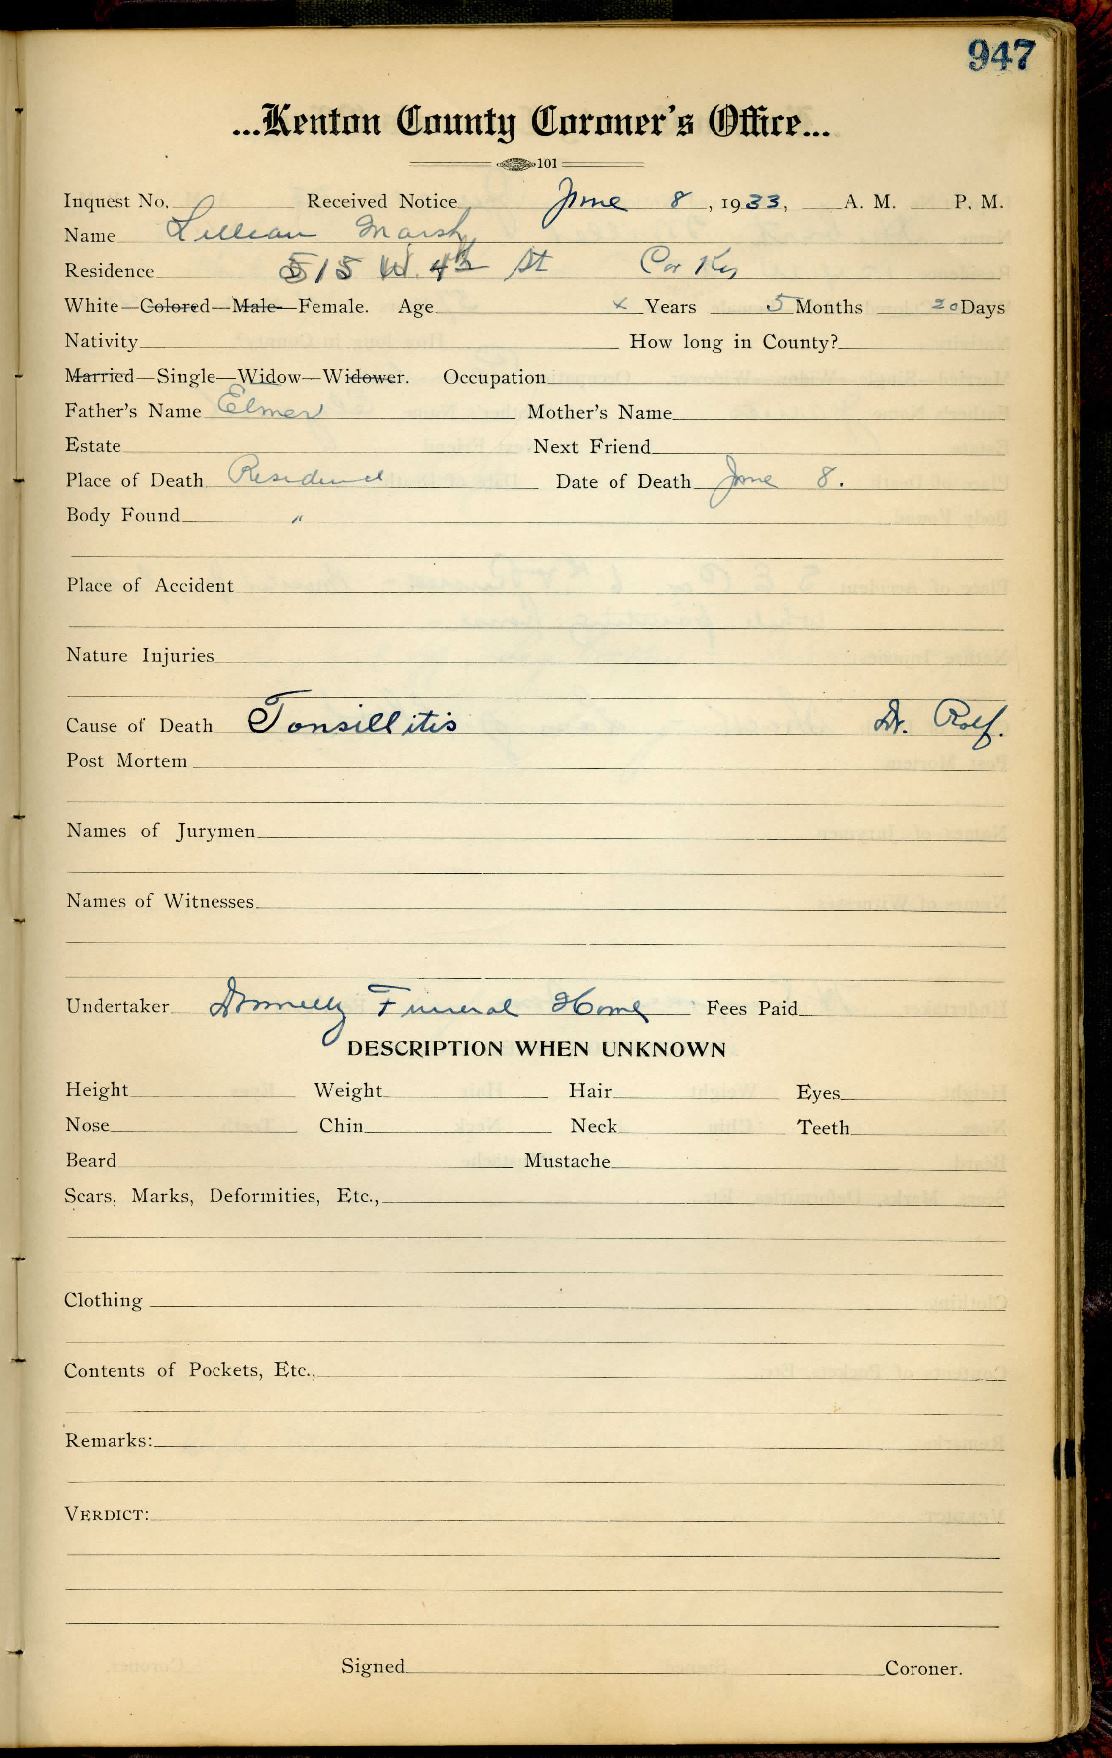 947
...Kenton County Coroner's Office...
101
Inquest No. Received Notice June 8, 1933, A. M. P. M.
Name Lillian Marsh
Residence 515 W. 4th St Cov Ky
White—Colored—Male—Female. Age x Years 5 Months 20 Days
Nativity How long in County?
Married—Single—Widow—Widower. Occupation
Father's Name Elmer Mother's Name
Estate Next Friend
Place of Death Residence Date of Death June 8.
Body Found "
Place of Accident
Nature Injuries
Cause of Death Tonsillitis Dr. Rolf.
Post Mortem
Names of Jurymen
Names of Witnesses
Undertaker Donnelly Funeral Home Fees Paid
DESCRIPTION WHEN UNKNOWN
Height Weight Hair Eyes
Nose Chin Neck Teeth
Beard Mustache
Scars, Marks, Deformities, Etc.,
Clothing
Contents of Pockets, Etc.,
Remarks:
VERDICT:
Signed Coroner.